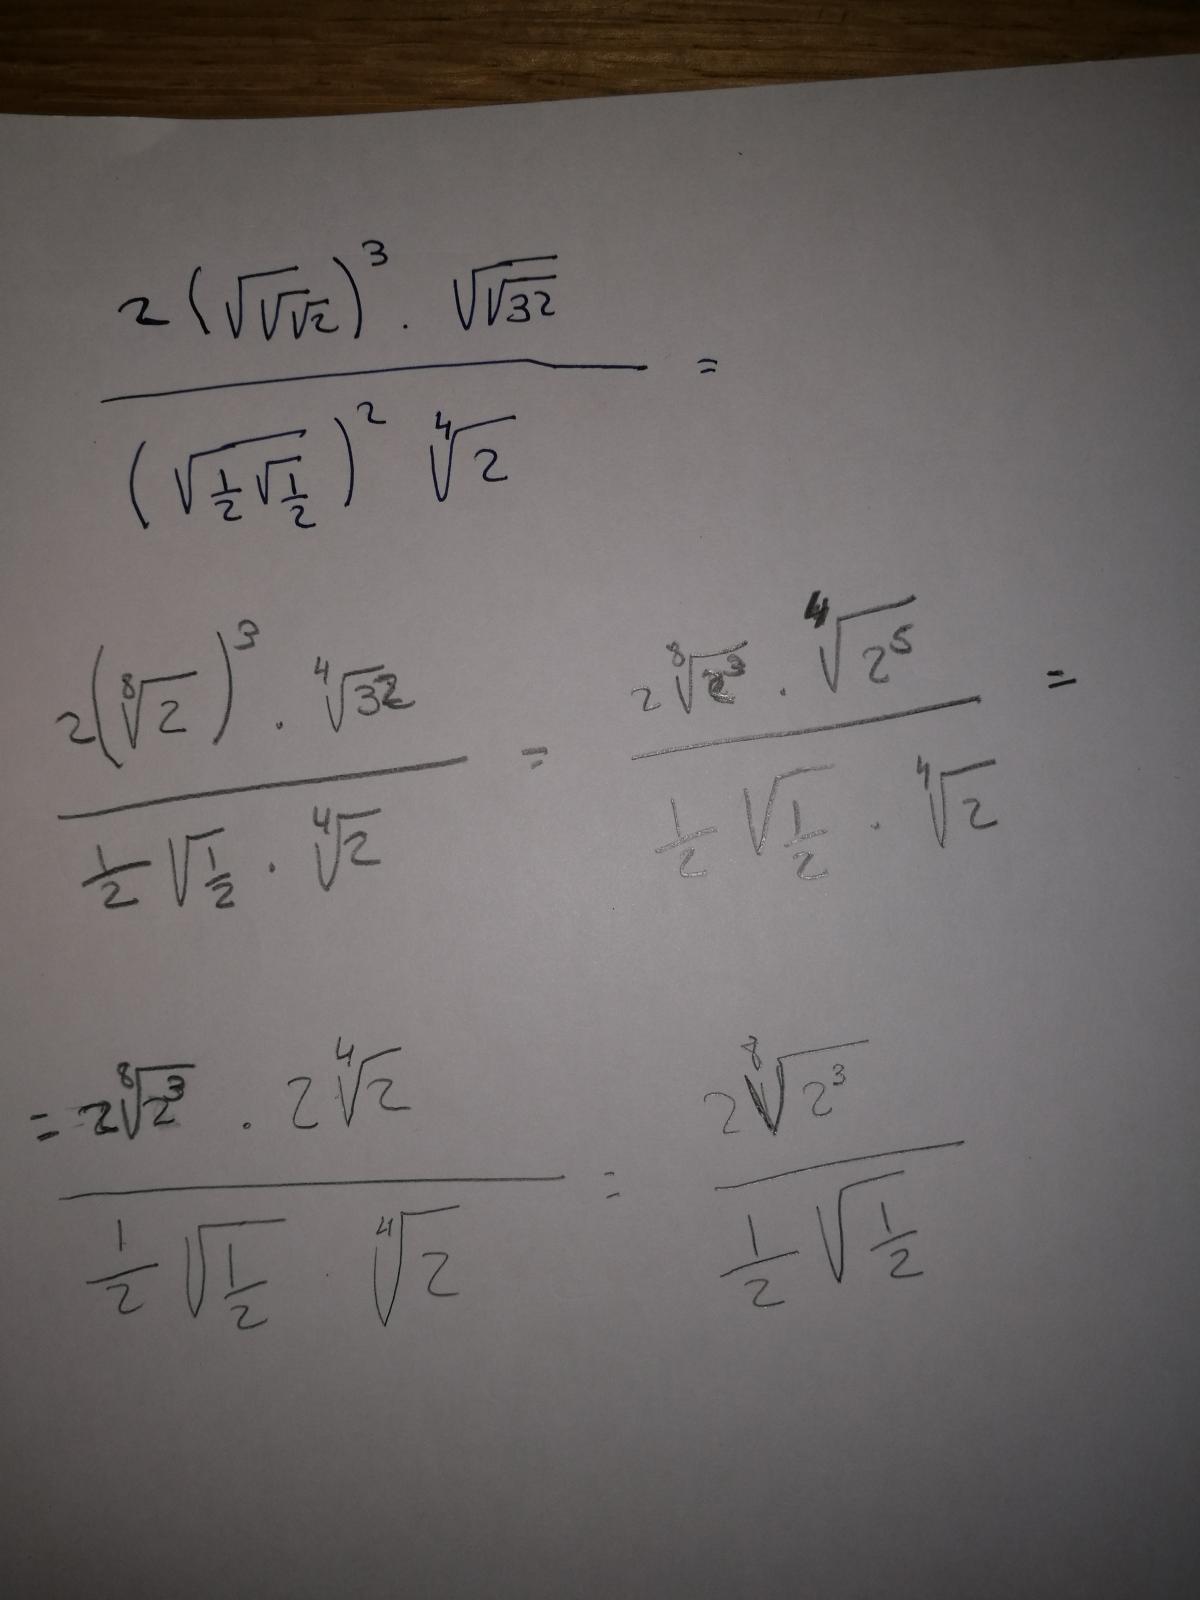 2(√√√2)³ · √√32
―――――――――― =
(√(1/2 √(1/2)))² ⁴√2
2(⁸√2)³ · ⁴√32 / (1/2 √(1/2) · ⁴√2) = 2 ⁸√2³ · ⁴√2⁵ / (1/2 √(1/2) · ⁴√2) =
= 2 ⁸√2³ · 2 ⁴√2 / (1/2 √(1/2) · ⁴√2) = 2 ⁸√2³ / (1/2 √(1/2))